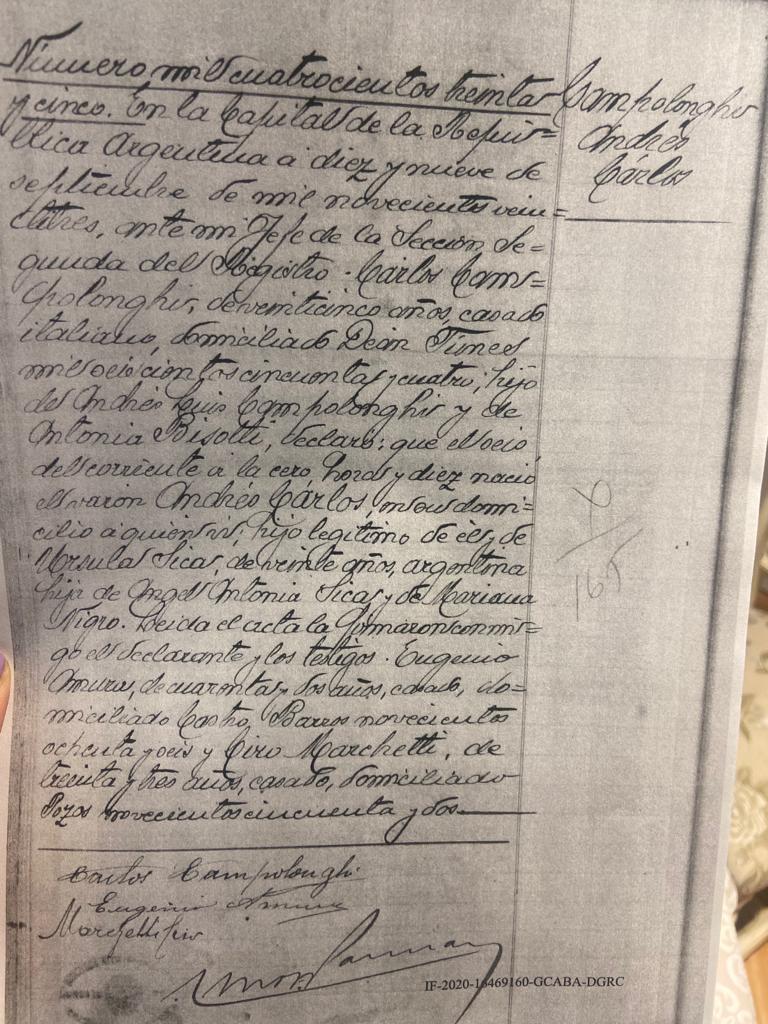 Número mil cuatrocientos treinta
y cinco. En la Capital de la Repú=
blica Argentina a diez y nueve de
septiembre de mil novecientos vein=
titres, ante mi Jefe de la Sección Se=
gunda del Registro. Carlos Cam=
polonghi, de veinticinco años, casado
italiano, domiciliado Dean Funes
mil ocio cientos cincuenta y cuatro, hijo
de Andrés Luis Campolonghi y de
Antonia Bisotti, declaro: que el ocio
del corriente a la cero horas y diez nació
el varon Andrés Cárlos, en su domi=
cilio a quien vi; hijo legitimo de él y de
Ursula Sica, de veinte años, argentina
hija de Angel Antonia Sica y de Mariana
Nigro. Leida el acta la firmaron conmi=
go el declarante y los testigos. Eugenio
de cuarenta y dos años, casado, do=
miciliado Castro Barros novecientos
ochenta y seis y Ciro Marchetti, de
treinta y tres años, casado, domiciliado
Pozos novecientos cincuenta y dos
Campolonghi
Andrés
Cárlos
165
Carlos Campolonghi
Eugenio
Marchetti Ciro